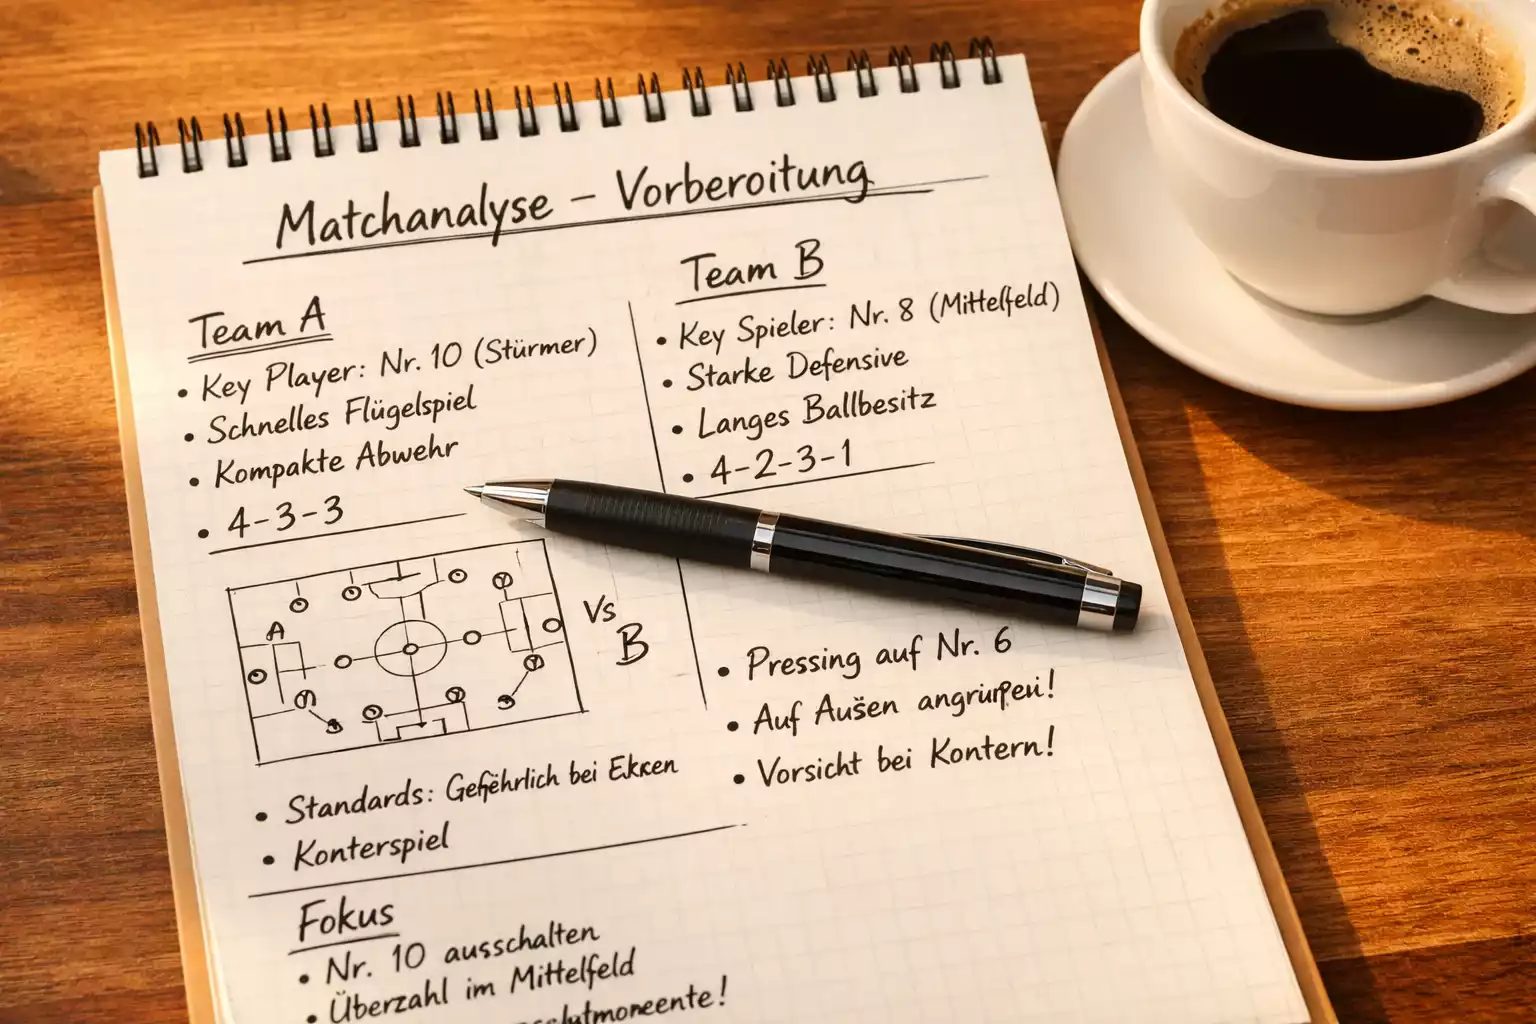 Matchanalyse – Vorberoitung
Team A
• Key Player: Nr. 10 (Stürmer)
• Schnelles Flügelspiel
• Kompakte Abwehr
• 4-3-3
Team B
• Key Spieler: Nr. 8 (Mittelfeld)
• Starke Defensive
• Langes Ballbesitz
• 4-2-3-1
A
Vs
B
• Standards: Gefährlich bei Ekken
• Konterspiel
• Pressing auf Nr. 6
• Auf Außen
• Vorsicht bei Kontern!
Fokus
• Nr. 10 ausschalten
• Überzahl im Mittelfeld